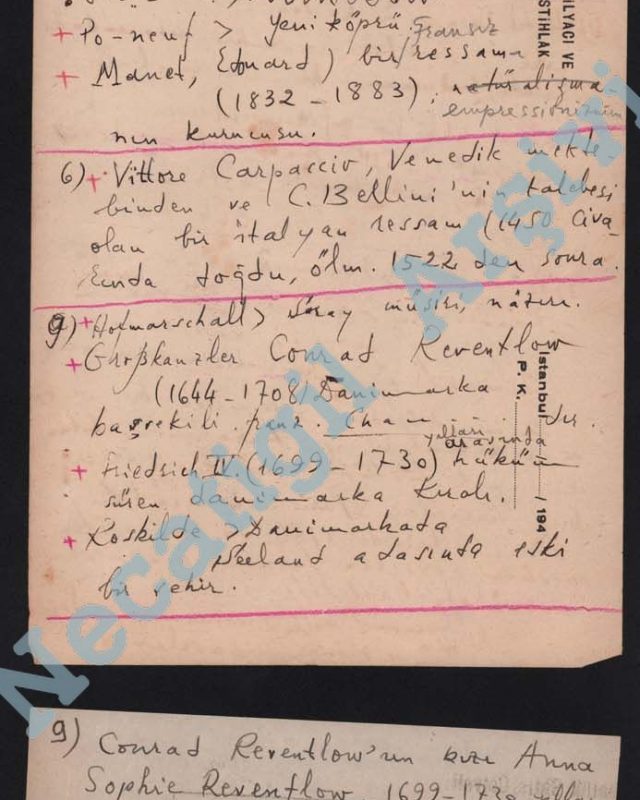 + Po-neuf > Yeni köprü, Fransız
+ Manet, Eduard) bir ressam
(1832 - 1883); natüralizma-
empressionizmin
nın kurucusu.
6) + Vittore Carpaccio, Venedik mekte
binden ve C. Bellini'nin talebesi
olan bir italyan ressam (1450 civa
rında doğdu, ölm. 1522 den sonra.
9) + Hofmarschall > Saray müşiri, nâzırı.
+ Großkanzler Conrad Reventlow
(1644-1708) Danimarka
başvekili. franz.
yılları
arasında
+ Friedrich IV. (1699 - 1730) hüküm
süren danimarka Kralı.
+ Roskilde > Danimarkada
Seeland adasında eski
bir şehir.
9) Conrad Reventlow'un kızı Anna
Sophie Reventlow, 1699-1730
İLYACI VE
İSTİHLAK
İstanbul / / 194
P. K.
Necatigil Arşivi